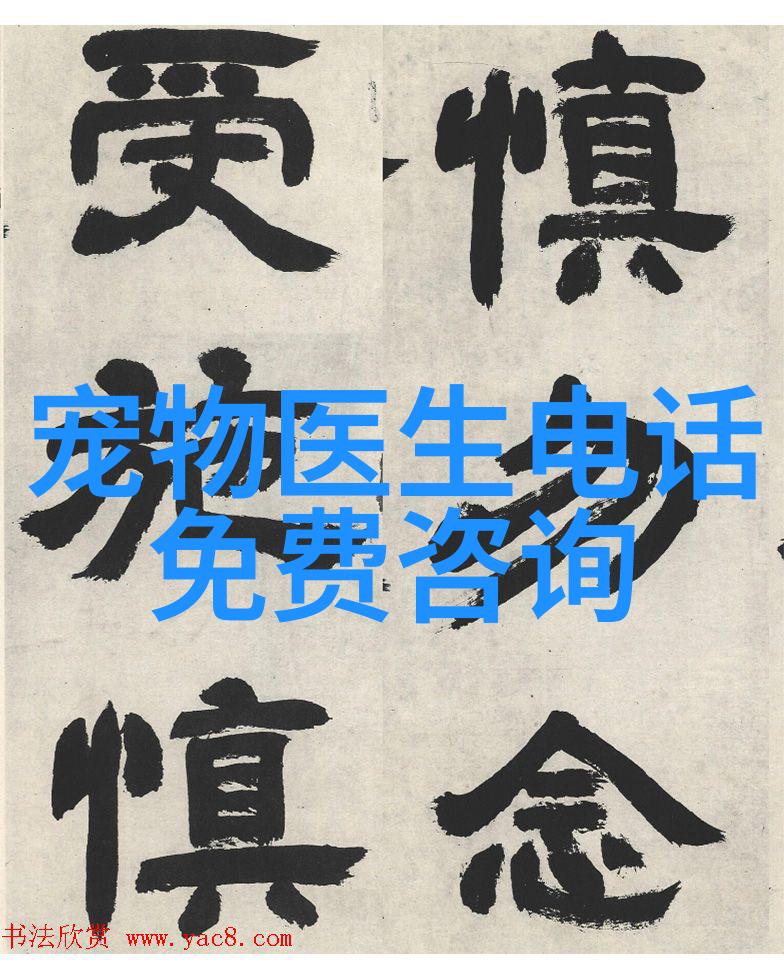 慎勿念
受施慎
宠物医生电话
免费咨询
书法欣赏 www.yac8.com